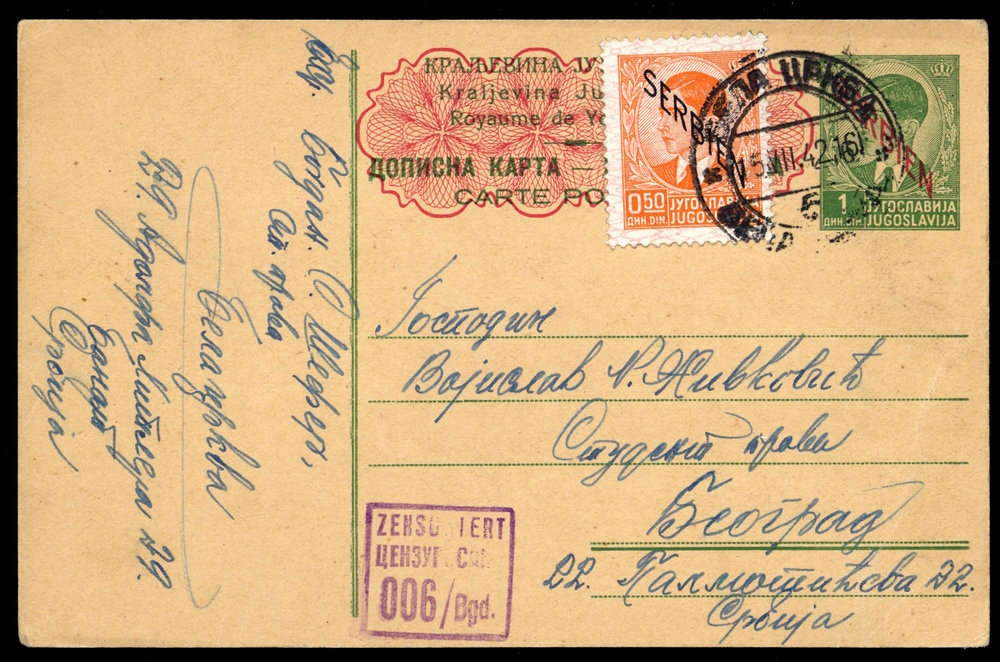 КРАЉЕВИНА ЈУ
Kraljevina JU
Royaume de Yo
ДОПИСНА КАРТА —
CARTE PO
SERBIEN
0.50 ЈУГОСЛАВИЈА
ДИН. DIN. JUGOSLAVIJA
ЛА ЦРКВА
15 VII 42 16
SERBIEN
1 ЈУГОСЛАВИЈА
ДИН DIN JUGOSLAVIJA
Господин
Војислав Н. Живковић
Студент права
Београд
22. Палмотићева 22.
Србија
ZENSURIERT
ЦЕНЗУРИСАН
006/Bgd.
Богдан О.
Бела Црква
29.
29.
Банат
Србија